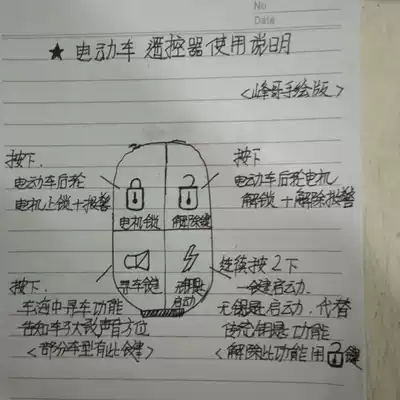 No
Date
★ 电动车 遥控器使用说明
<峰哥手绘版>
按下.
电动车后轮
电机上锁+报警
按下
电动车后轮电机
解锁+解除报警
电机锁
解除键
寻车键
无钥匙
启动
按下.
车海中寻车功能
告知车子大致声音方位
<部分车型有此键>
连续按2下
一键启动.
无钥匙启动.代替
传统钥匙功能
<解除此功能用 键